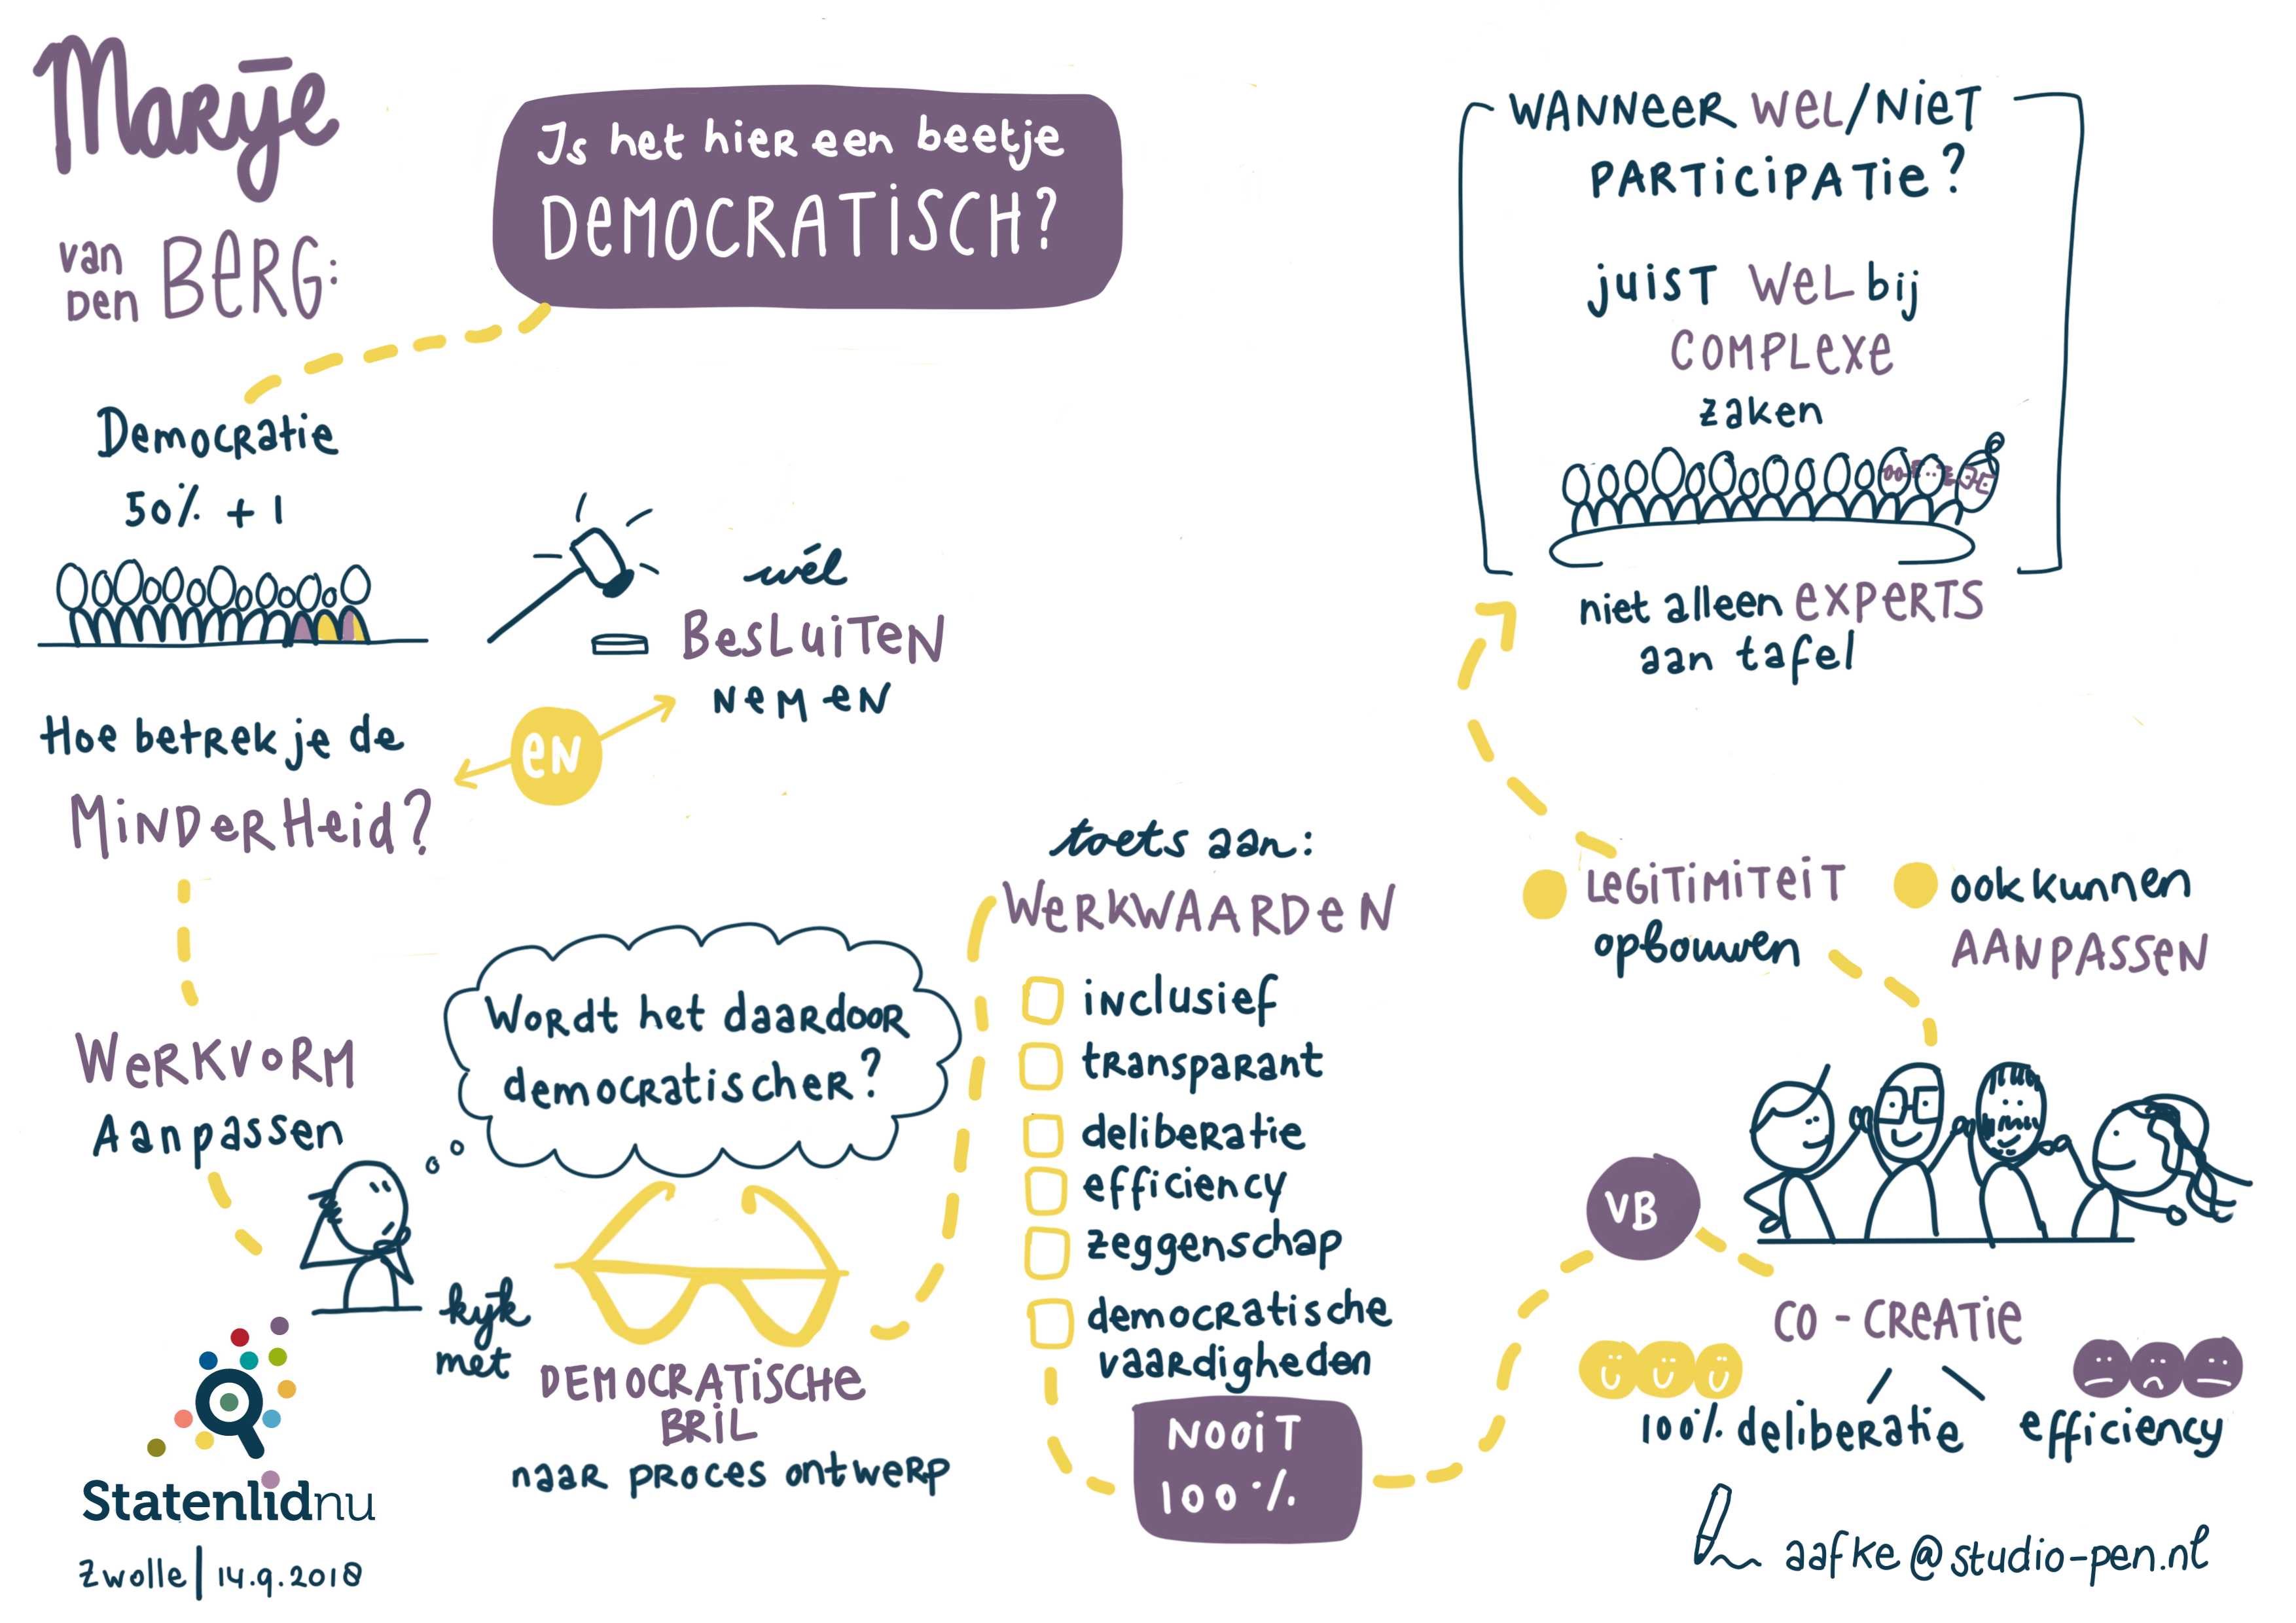 Marije
van den BERG:
Is het hier een beetje
DEMOCRATISCH?
Democratie
50% + 1
Hoe betrek je de
MINDERHEID?
EN
wél
BESLUITEN
NEMEN
WERKVORM
Aanpassen
Wordt het daardoor
democratischer?
kijk
met
DEMOCRATISCHE
BRIL
naar proces ontwerp
toets aan:
WERKWAARDEN
inclusief
transparant
deliberatie
efficiency
zeggenschap
democratische
vaardigheden
NOOIT
100%
VB
CO-CREATIE
100% deliberatie
efficiency
LEGITIMITEIT
opbouwen
ook kunnen
AANPASSEN
WANNEER WEL/NIET
PARTICIPATIE?
juist WEL bij
COMPLEXE
zaken
niet alleen EXPERTS
aan tafel
Statenlidnu
Zwolle | 14.9.2018
aafke@studio-pen.nl